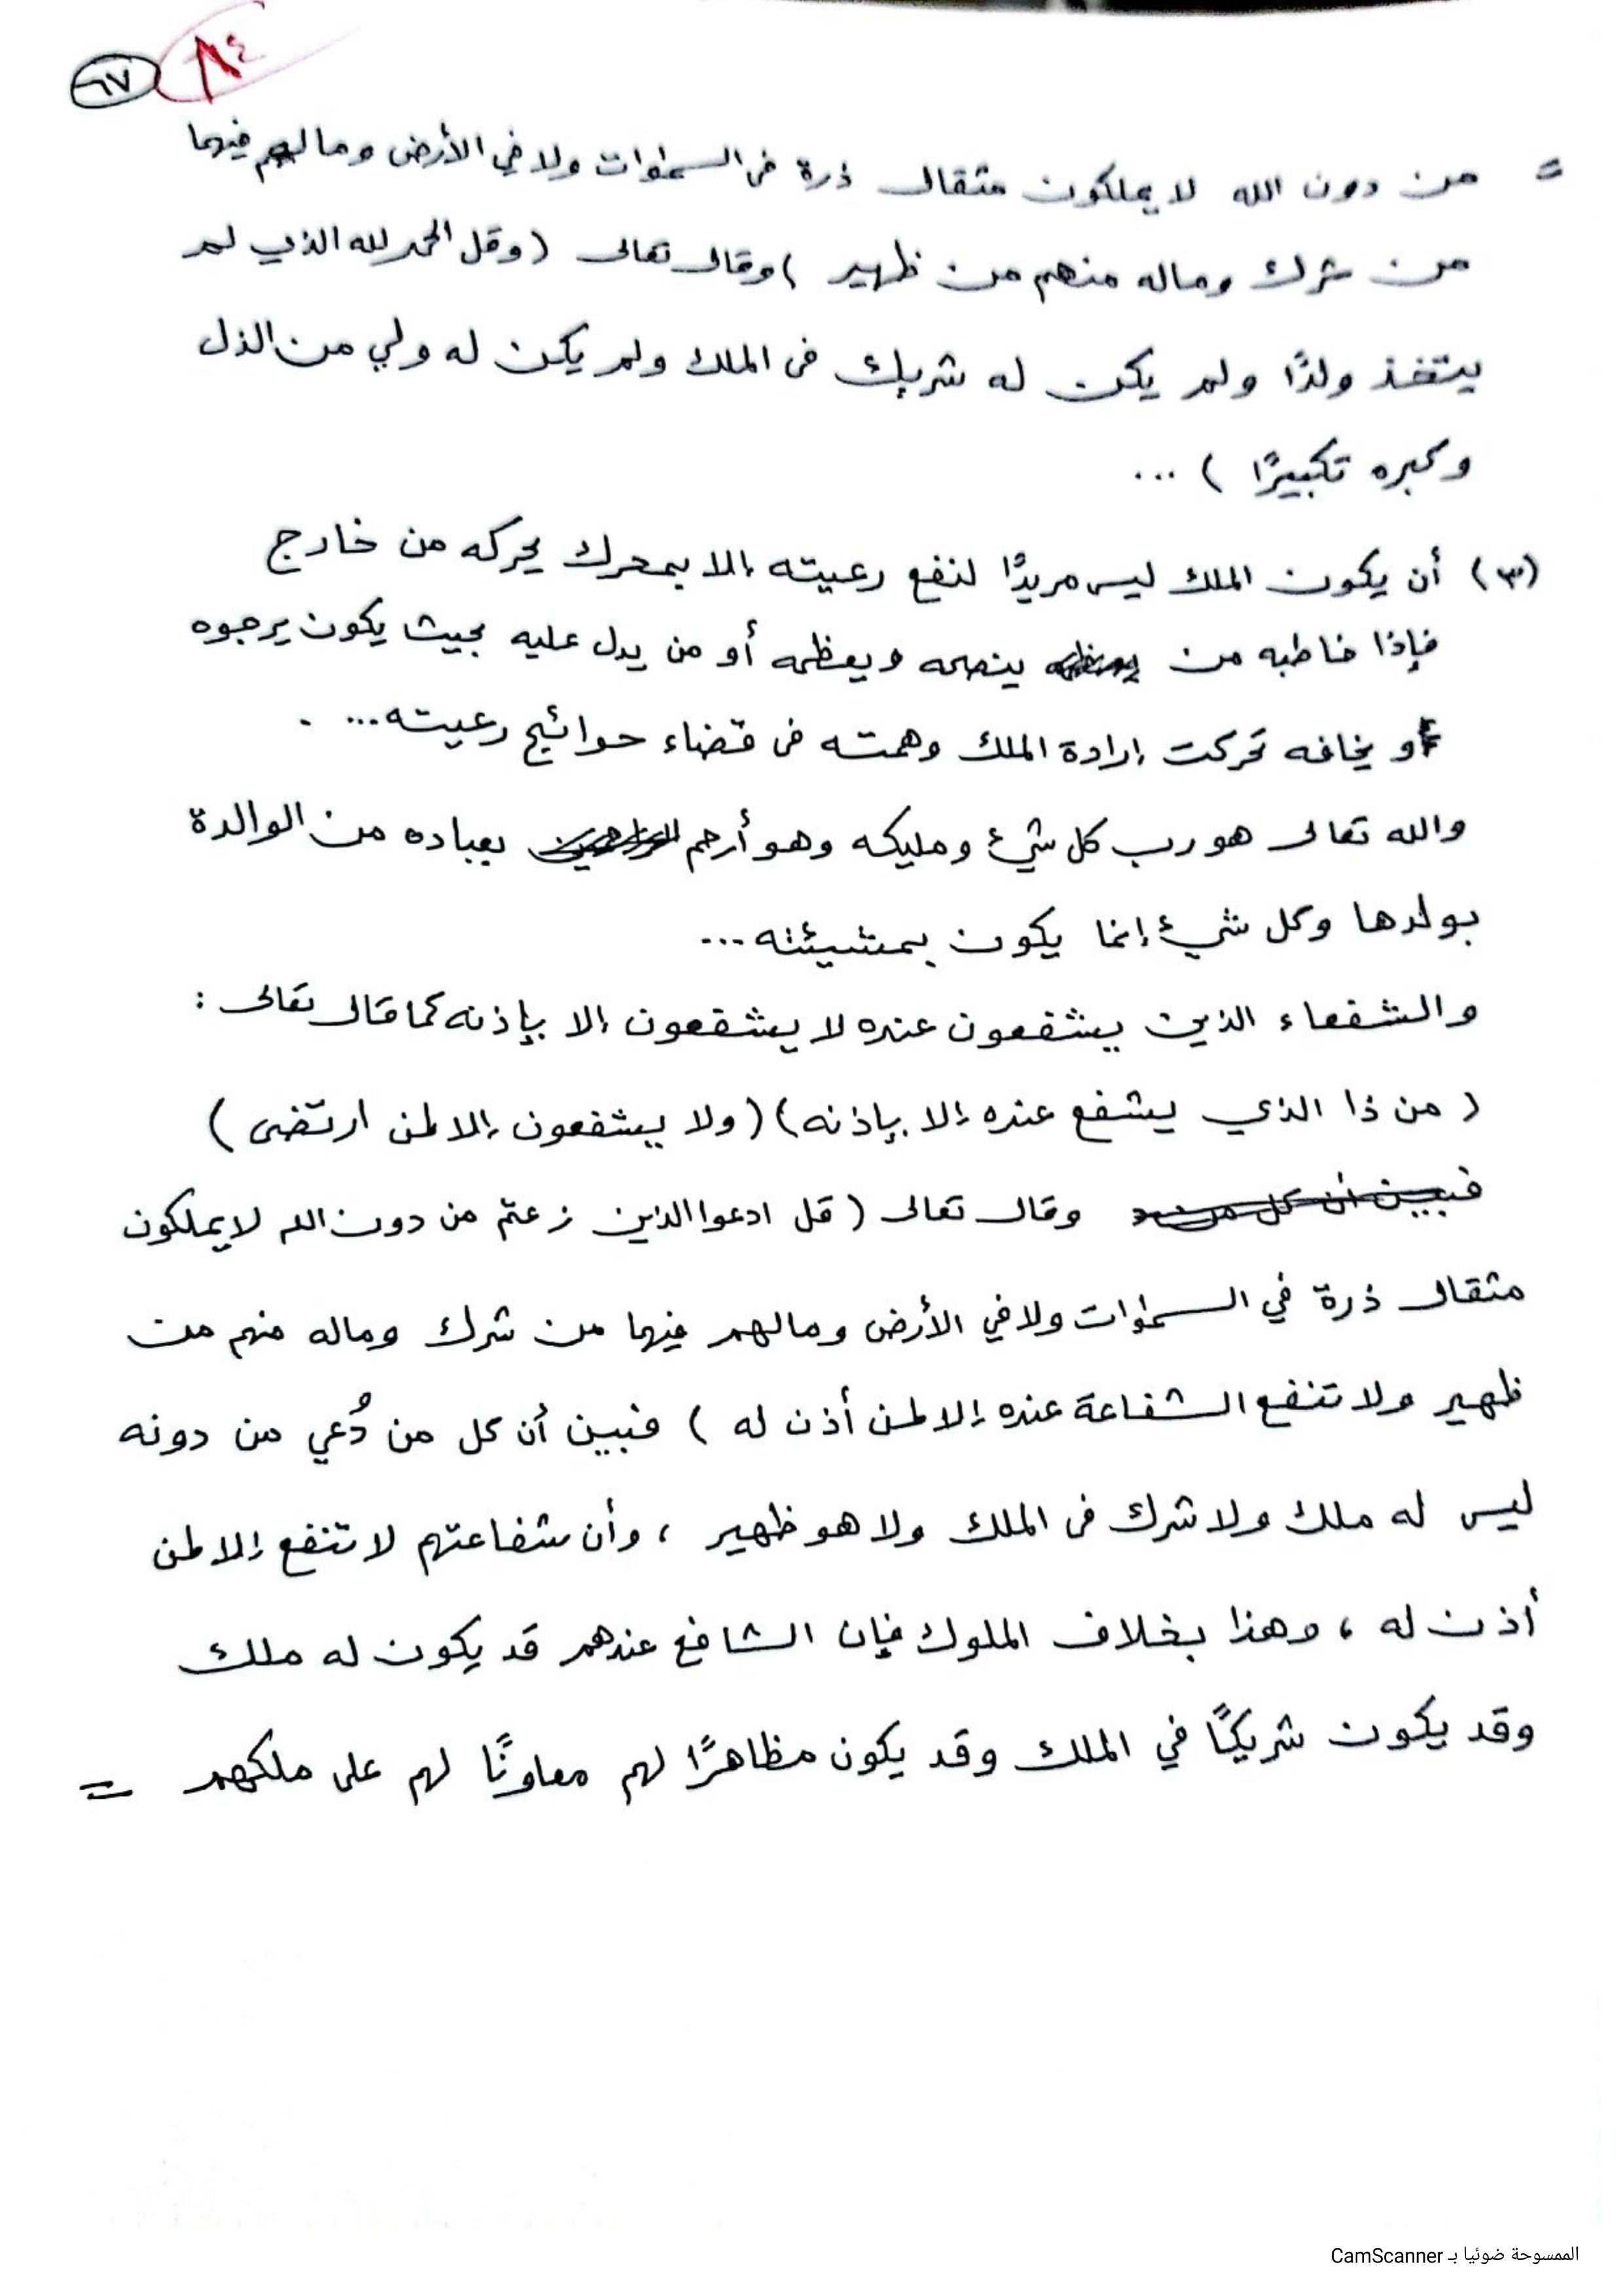 ٨٤ ٦٧
= من دون الله لا يملكون مثقال ذرة فى السمٰوات ولا في الأرض وما لهم فيهما
من شرك وماله منهم من ظهير ) وقال تعالى ( وقل الحمد لله الذي لم
يتخذ ولدًا ولم يكن له شريك فى الملك ولم يكن له ولي من الذل
وكبره تكبيرًا ) ...
(٣) أن يكون الملك ليس مريدًا لنفع رعيته إلا بمحرك يحركه من خارج
فإذا خاطبه من ينصحه ويعظمه أو من يدل عليه بحيث يكون يرجوه
أو يخافه تحركت إرادة الملك وهمته فى قضاء حوائج رعيته... .
والله تعالى هو رب كل شيء ومليكه وهو أرحم الراحمين بعباده من الوالدة
بولدها وكل شيء إنما يكون بمشيئته ...
والشفعاء الذين يشفعون عنده لا يشفعون إلا بإذنه كما قال تعالى :
( من ذا الذي يشفع عنده إلا بإذنه ) ( ولا يشفعون إلا لمن ارتضى )
فبين أن كل من وقال تعالى ( قل ادعوا الذين زعمتم من دون الله لا يملكون
مثقال ذرة في السمٰوات ولا في الأرض وما لهم فيهما من شرك وماله منهم من
ظهير ولا تنفع الشفاعة عنده إلا لمن أذن له ) فبين أن كل من دُعي من دونه
ليس له ملك ولا شرك فى الملك ولا هو ظهير ، وأن شفاعتهم لا تنفع إلا لمن
أذن له ، وهذا بخلاف الملوك فإن الشافع عندهم قد يكون له ملك
وقد يكون شريكًا في الملك وقد يكون مظاهرًا لهم معاونًا لهم على ملكهم =
الممسوحة ضوئيا بـ CamScanner